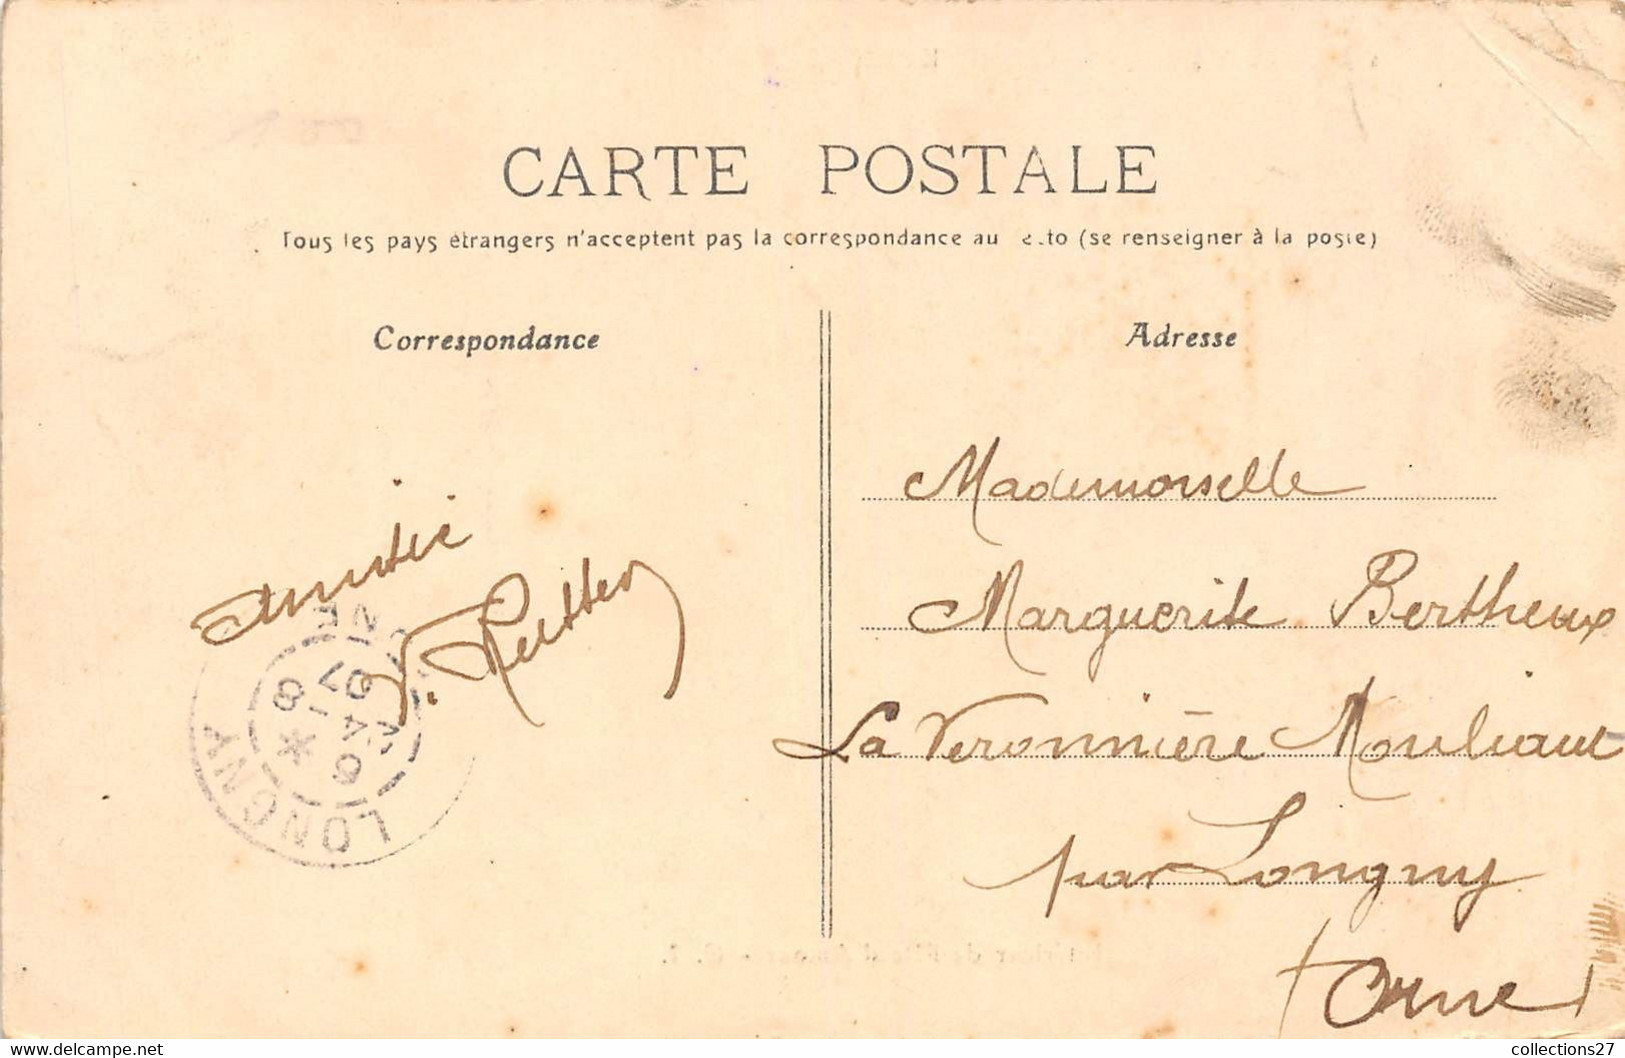 CARTE POSTALE
Tous les pays étrangers n'acceptent pas la correspondance au recto (se renseigner à la poste)
Correspondance
Adresse
amitié
Mademoiselle
Marguerite Bertheux
La Veronnière Mouliaut
par Longny
Orne
LONGNY
collections27